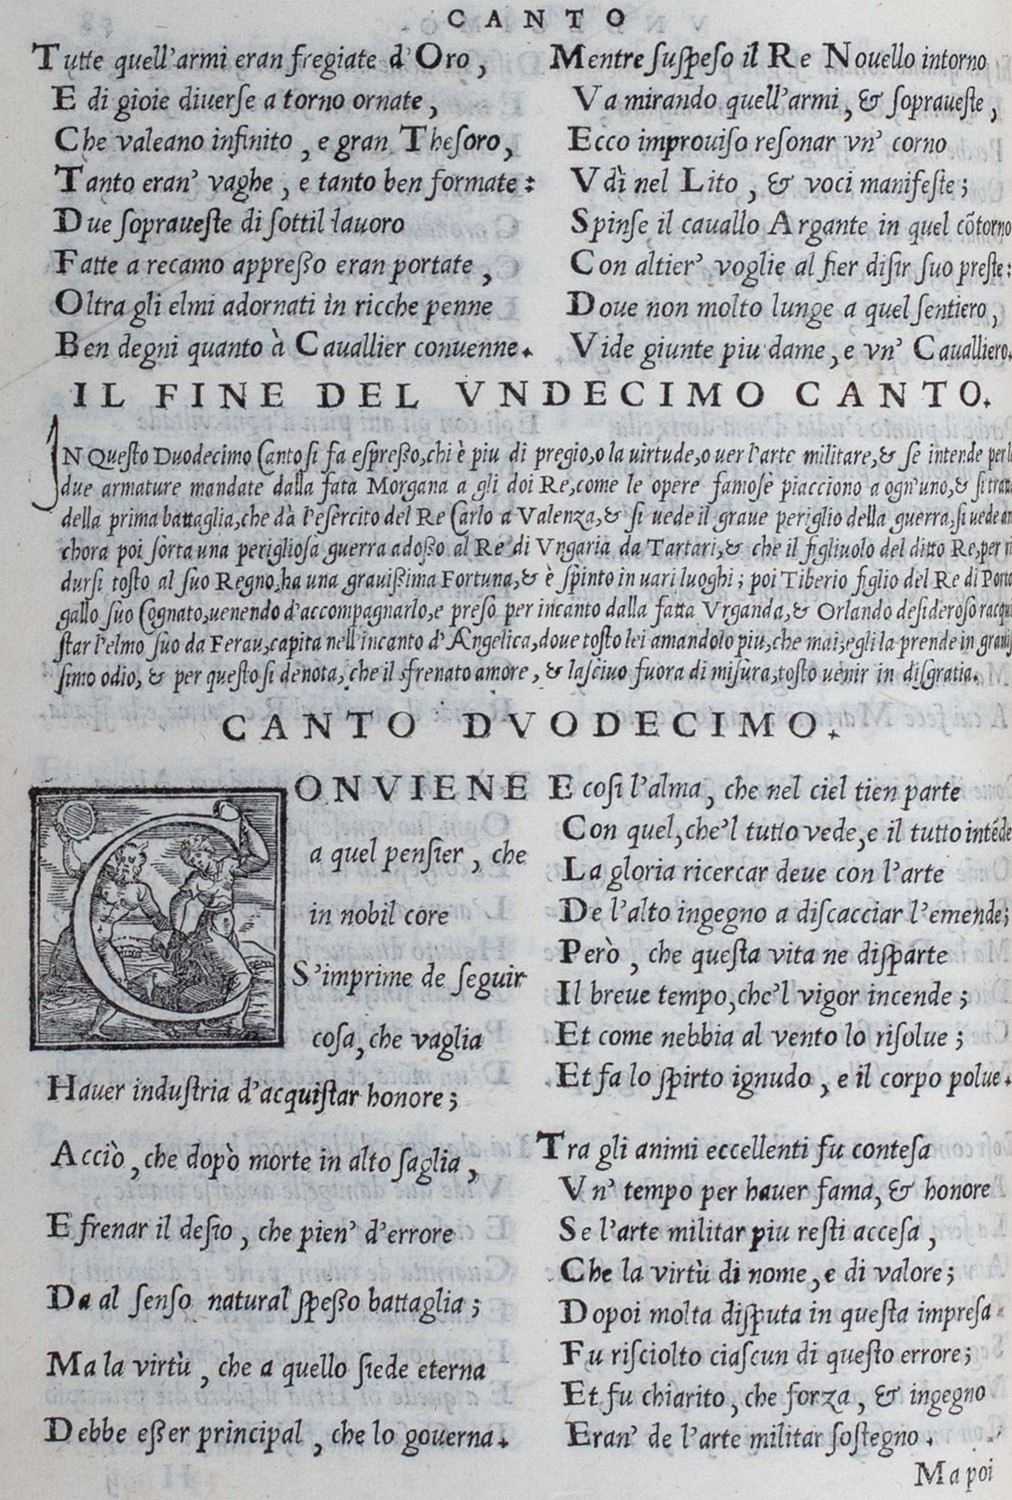 CANTO
Tutte quell'armi eran fregiate d'Oro,
E di gioie diuerſe a torno ornate,
Che valeano infinito, e gran Theſoro,
Tanto eran' vaghe, e tanto ben formate:
Due ſoprauеſte di ſottil lauoro
Fatte a recamo appreſſo eran portate,
Oltra gli elmi adornati in ricche penne
Ben degni quanto à Cauallier conuenne.
Mentre ſuſpeſo il Re Nouello intorno
Va mirando quell'armi, & ſopraueſte,
Ecco improuiſo reſonar vn' corno
Vdì nel Lito, & voci manifeſte;
Spinſe il cauallo Argante in quel cõtorno
Con altier' voglie al fier diſir ſuo preſte:
Doue non molto lunge a quel ſentiero,
Vide giunte piu dame, e vn' Caualliero.
IL FINE DEL VNDECIMO CANTO.
IN Queſto Duodecimo Canto ſi fa eſpreſſo, chi è piu di pregio, o la uirtude, o uer l'arte militare, & ſe intende per le
due armature mandate dalla fata Morgana a gli doi Re, come le opere famoſe piacciono a ogn'uno, & ſi tratta
della prima battaglia, che dà l'eſercito del Re Carlo a Valenza, & ſi uede il graue periglio della guerra, ſi uede an
chora poi ſorta una periglioſa guerra adoſſo al Re di Vngaria da Tartari, & che il figliuolo del ditto Re, per ri
durſi toſto al ſuo Regno, ha una grauiſſima Fortuna, & è ſpinto in uari luoghi; poi Tiberio figlio del Re di Porto
gallo ſuo Cognato, uenendo d'accompagnarlo, e preſo per incanto dalla fatta Vrganda, & Orlando deſideroſo racqui
ſtar l'elmo ſuo da Ferau, capita nell'incanto d'Angelica, doue toſto lei amandolo piu, che mai, egli la prende in grauiſ
ſimo odio, & per queſto ſi denota, che il ſfrenato amore, & laſciuo fuora di miſura, toſto uenir in diſgratia.
CANTO DVODECIMO.
CONVIENE
a quel penſier, che
in nobil core
S'imprime de ſeguir
coſa, che vaglia
Hauer induſtria d'acquiſtar honore;
Acciò, che dopò morte in alto ſaglia,
E frenar il deſio, che pien' d'errore
Da al ſenſo natural ſpeſſo battaglia;
Ma la virtù, che a quello ſiede eterna
Debbe eſſer principal, che lo gouerna.
E coſi l'alma, che nel ciel tien parte
Con quel, che'l tutto vede, e il tutto intẽde
La gloria ricercar deue con l'arte
De l'alto ingegno a diſcacciar l'emende;
Però, che queſta vita ne diſparte
Il breue tempo, che'l vigor incende;
Et come nebbia al vento lo riſolue;
Et fa lo ſpirto ignudo, e il corpo polue.
Tra gli animi eccellenti fu conteſa
Vn' tempo per hauer fama, & honore
Se l'arte militar piu reſti acceſa,
Che la virtù di nome, e di valore;
Dopoi molta diſputa in queſta impreſa
Fu riſciolto ciaſcun di queſto errore;
Et fu chiarito, che forza, & ingegno
Eran' de l'arte militar ſoſtegno.
Ma poi